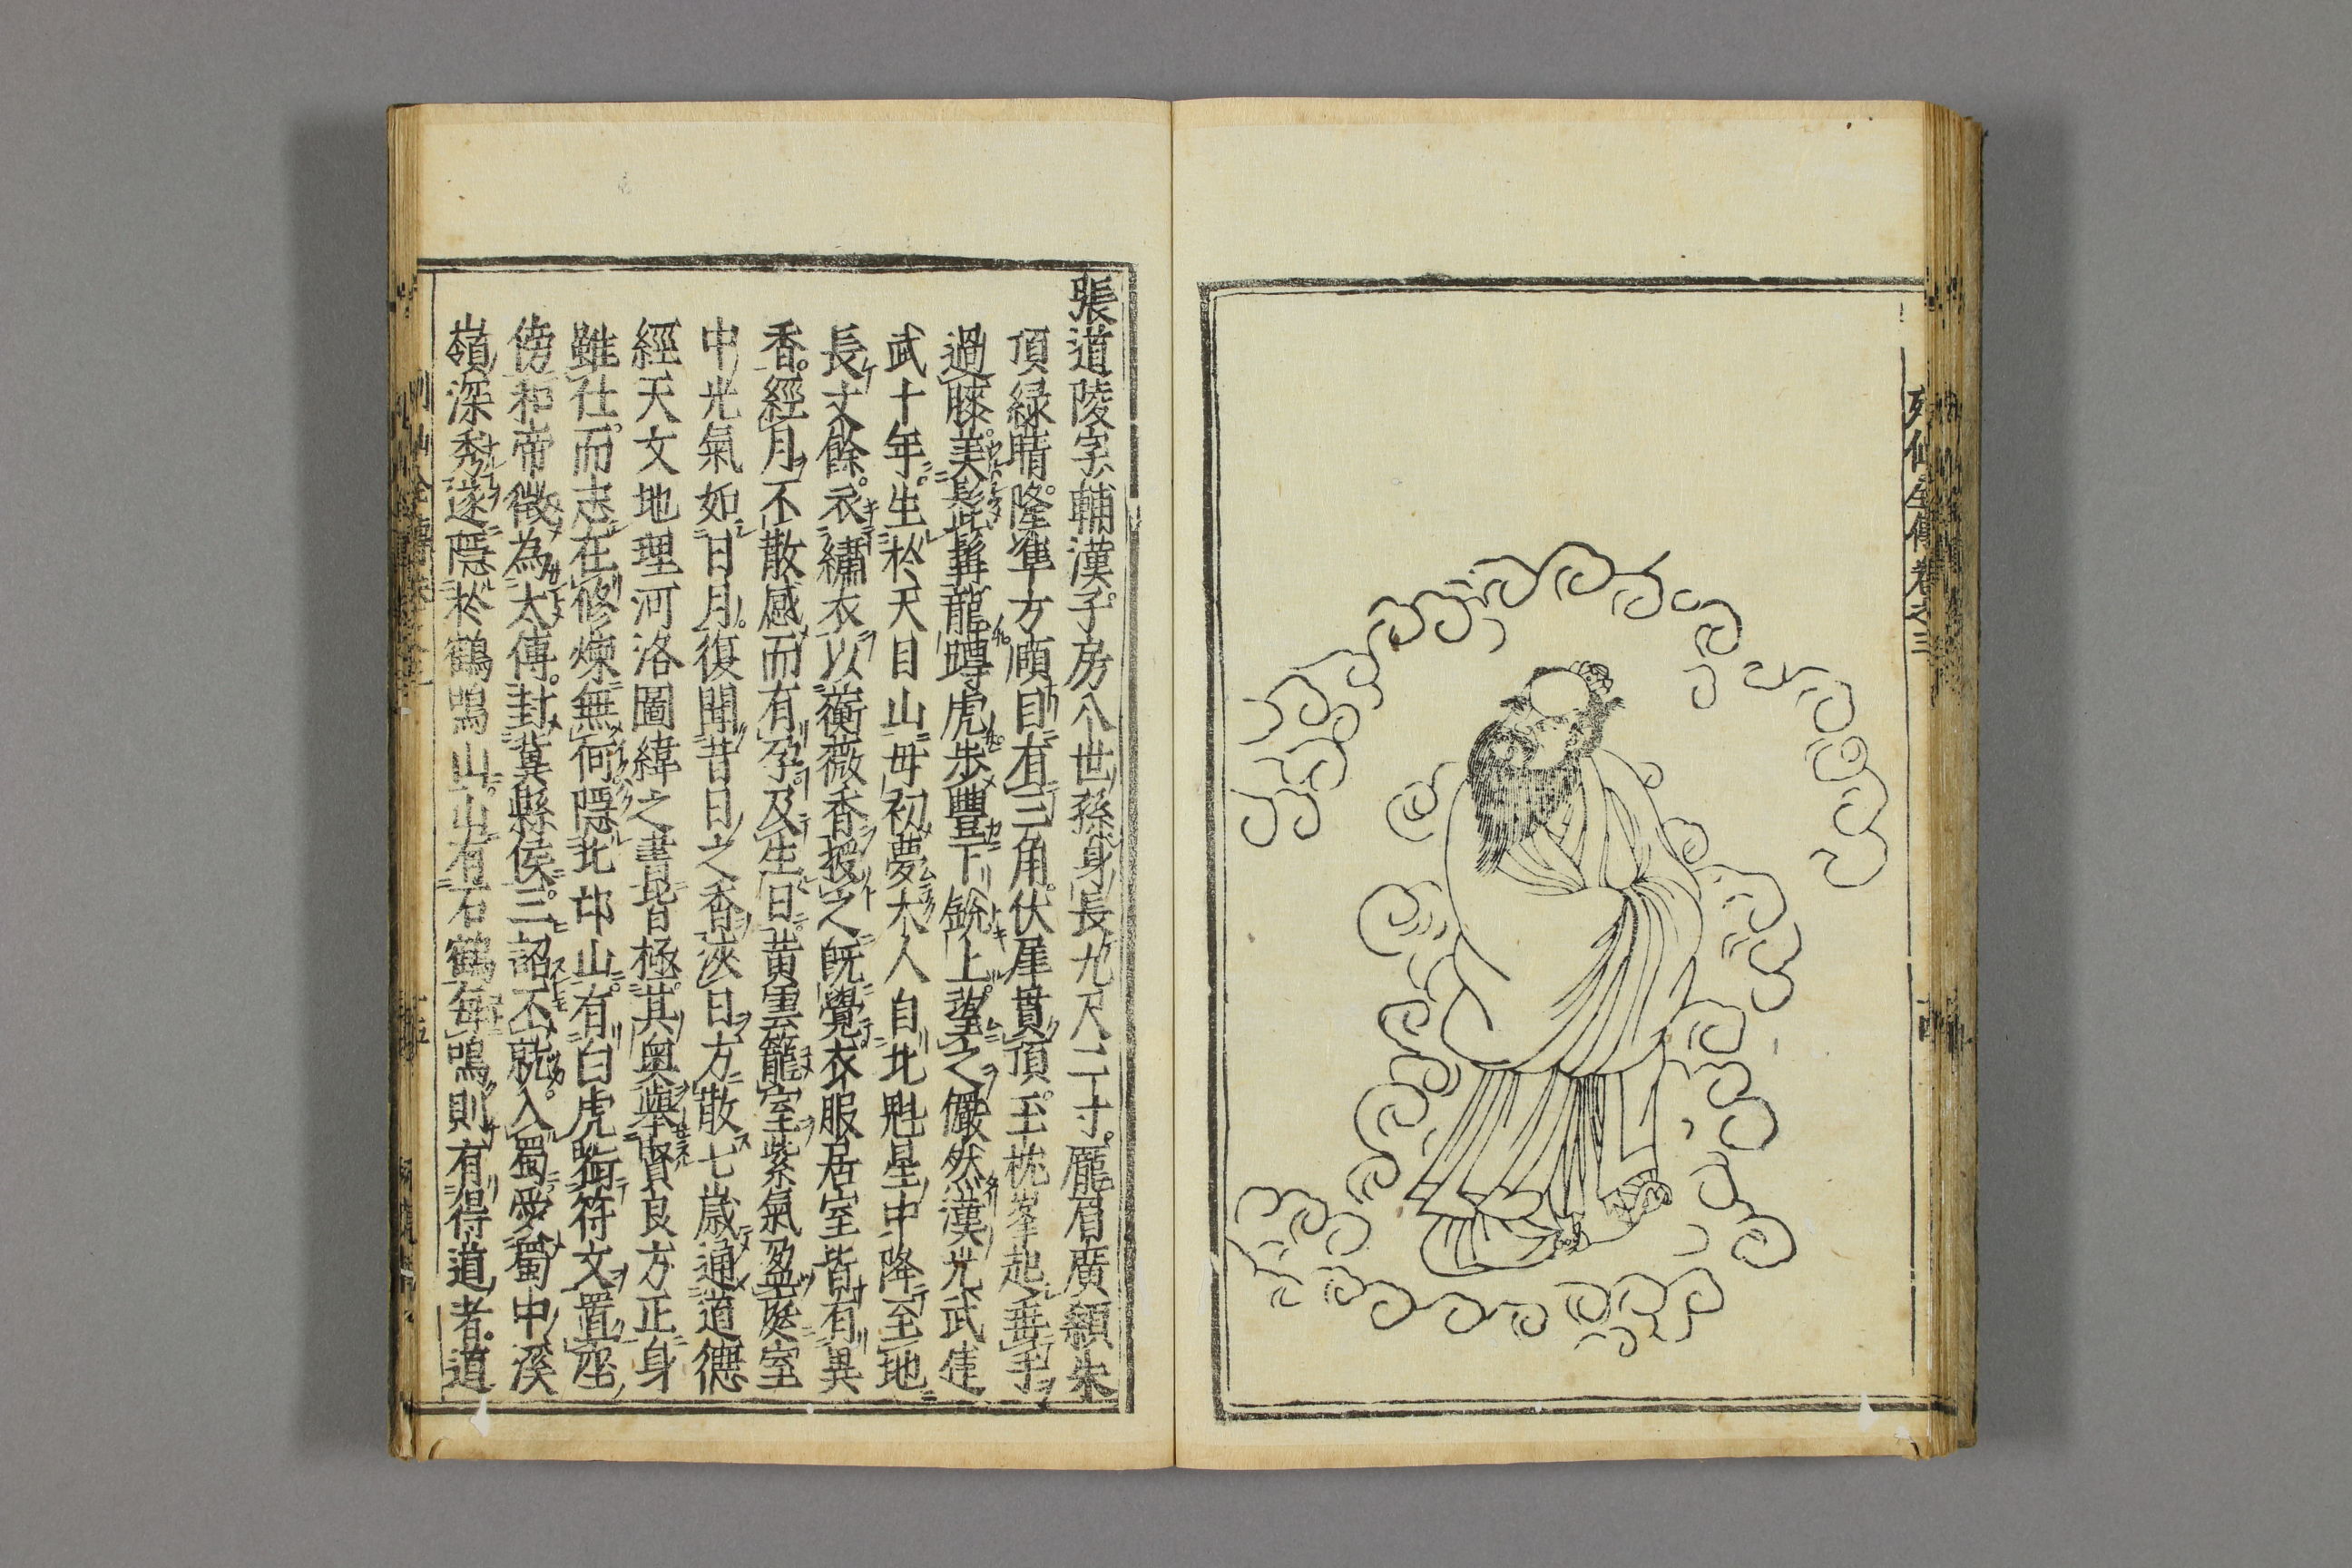 列仙全傳卷之三
張道陵字輔漢子房八世孫身長九尺二寸龐眉廣顙朱
頂緑睛隆準方頤目有三角伏犀貫頂玉枕峯起垂手
過膝美髭髯龍蹲虎歩豐下鋭上望之儼然漢光武建
武十年生於天目山母初夢大人自北魁星中降至地
長丈餘衣繡衣以蘅薇香授之既覺衣服居室皆有異
香經月不散感而有孕及生日黄雲籠室紫氣盈庭室
中光氣如日月復聞昔日之香浹日方散七歳通道德
經天文地理河洛圖緯之書皆極其奥舉賢良方正身
雖仕而志在修煉無何隠北邙山有白虎銜符文置座
傍和帝徴為太傅封冀縣侯三詔不就入蜀愛蜀中溪
嶺深秀遂隠於鶴鳴山山有石鶴毎鳴則有得道者道